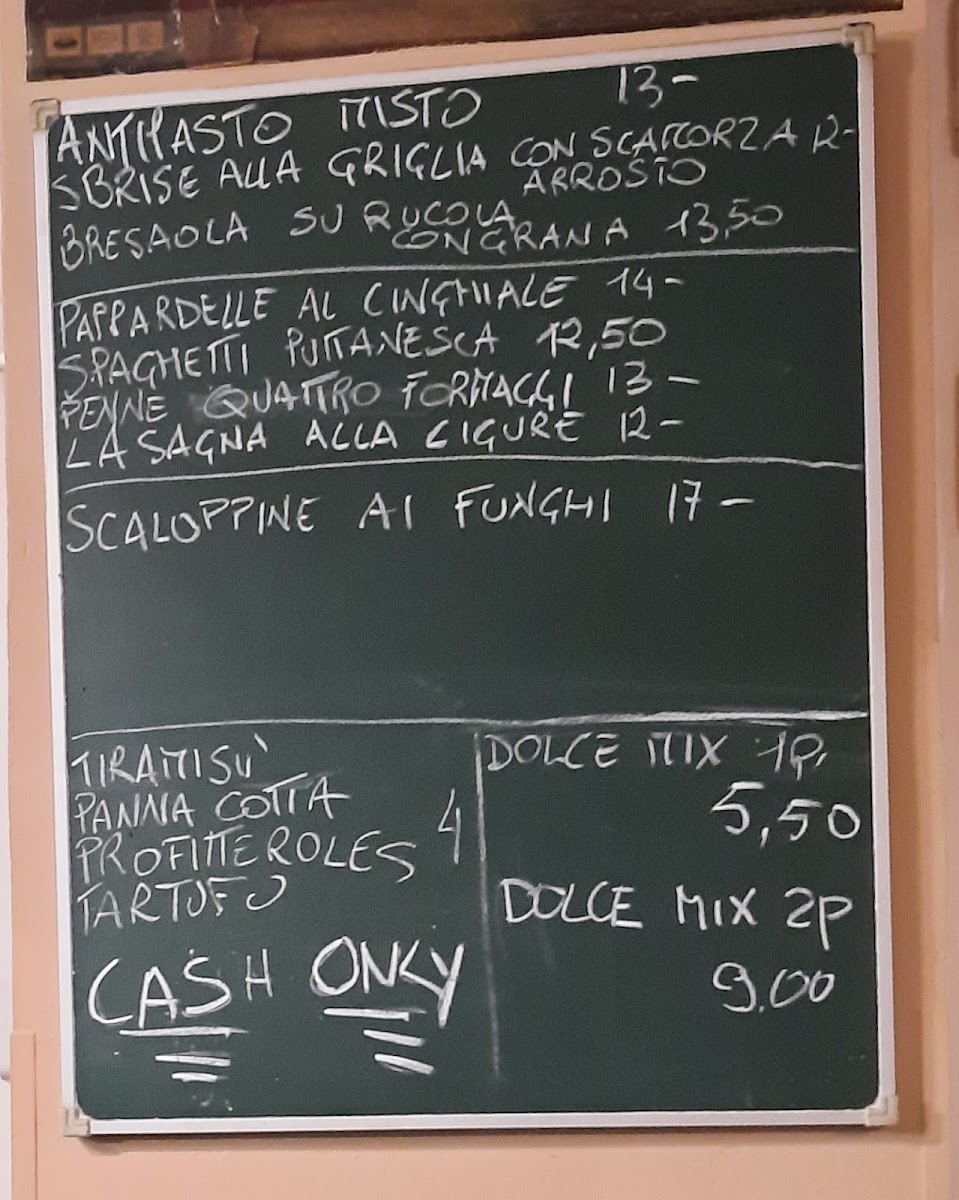 ANTIPASTO MISTO 13-
SBRISE ALLA GRIGLIA CON SCAMORZA 12-
ARROSTO
BRESAOLA SU RUCOLA
CON GRANA 13,50
PAPPARDELLE AL CINGHIALE 14-
SPAGHETTI PUTTANESCA 12,50
PENNE QUATTRO FORMAGGI 13-
LASAGNA ALLA LIGURE 12-
SCALOPPINE AI FUNGHI 17-
TIRAMISÙ
PANNA COTTA
PROFITTEROLES 4
TARTUFO
CASH ONLY
DOLCE MIX 1P,
5,50
DOLCE MIX 2P
9.00